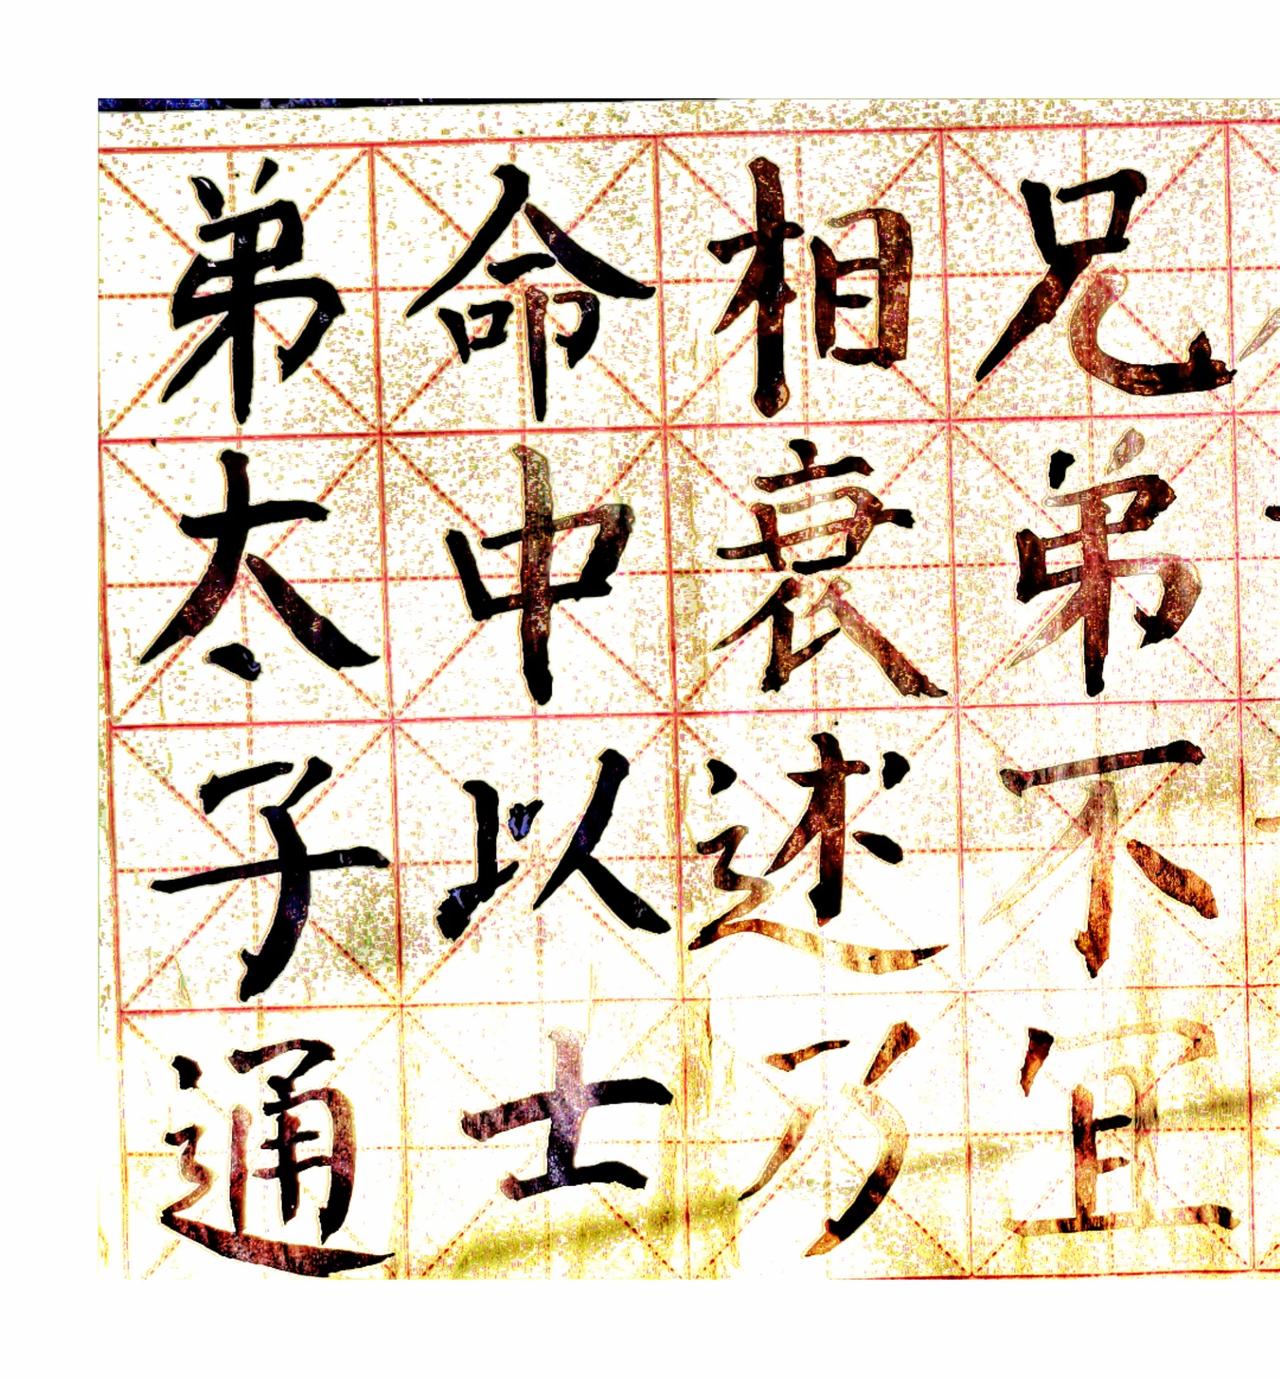 兄弟不宜
相衰述乃
命中以士
弟太子通